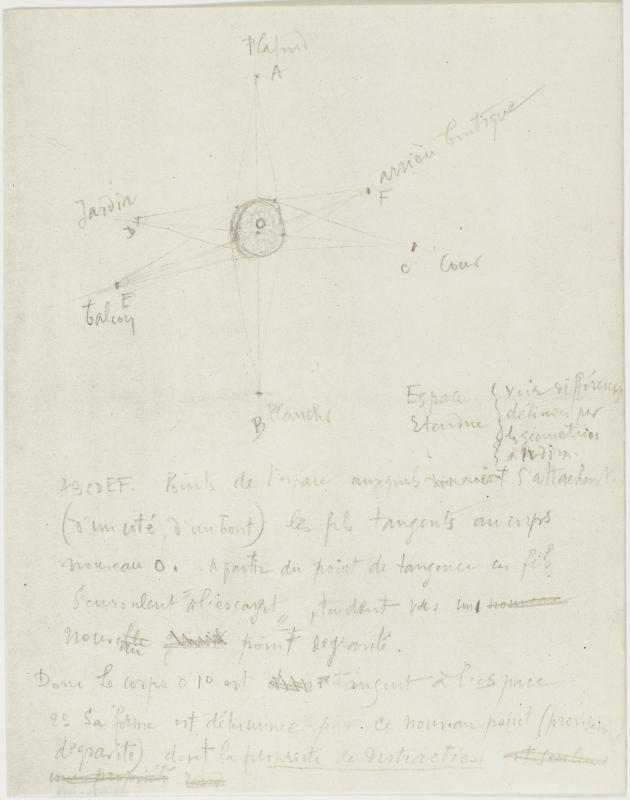 Plafond
A
arrière boutique
F
Jardin
D
C Cour
E
balcon
B Planché
Espace { voir différences
Etendue { définies par
les géométries
à n dim.
ABCDEF. Points de l'espace auxquels s'attachent
(d'un côté, d'un bout) les fils tangents au corps
nouveau O. A partir du point de tangence ces fils
s'enroulent "à l'escargot", tendent vers un nouveau
nouveau point de gravité.
Donc Le corps O 1° est tangent à l'espace
2° Sa forme est déterminée par ce nouveau point (provisoire
de gravité) dont la propriété de distraction est seulement
une propriété